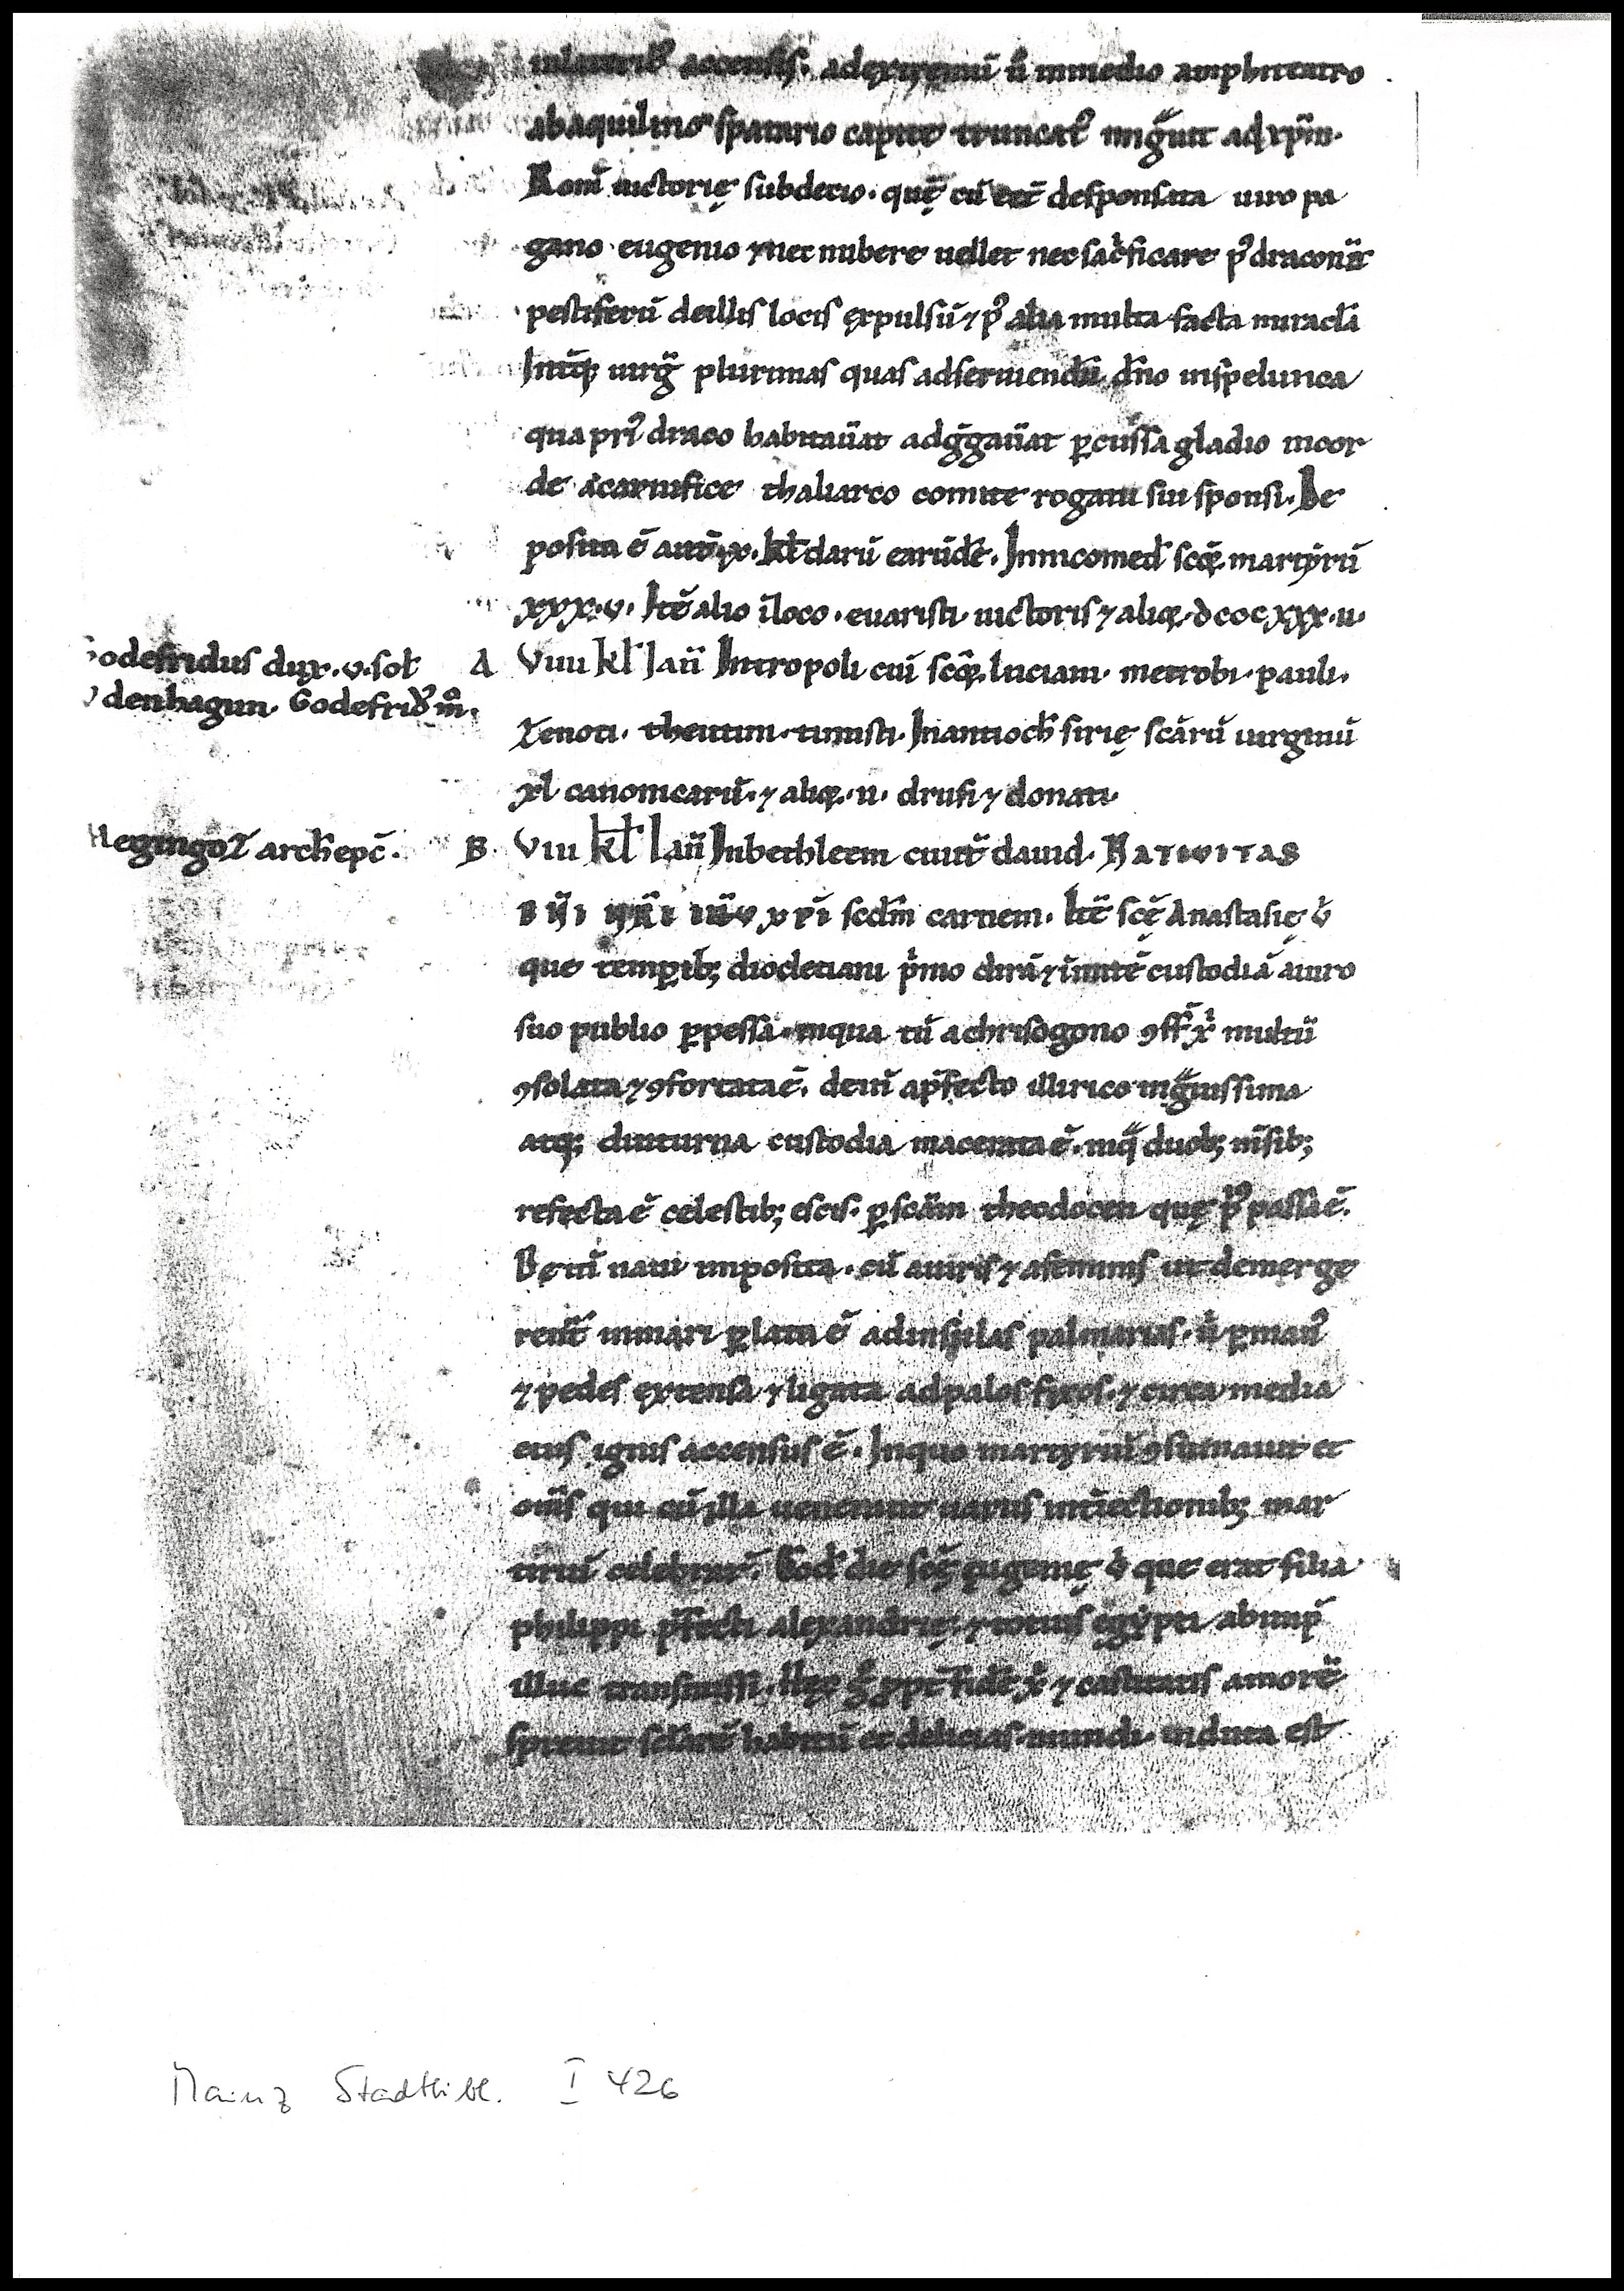 accensis. adextremū ů inmedio amphiteatro
abaquilino spatario capite truncat᷒ migͣuit adxp̄m.
Rom̄ uictorię subdecio. quę cū eēt desponsata uiro pa
gano eugenio ⁊ nec nubere uellet nec sac̓ficare p᷒ draconē
pestiferū deillis locis expulsū ⁊ p᷒ alia multa facta miracla
Int̄q; uirḡ plurimas quas adseruiendū dn̄o inspelunca
qua pri᷒ draco habitauat adg̓gauat ꝑcussa gladio incor
de acarnifice thaliarco comite rogatu sui sponsi. De
posita ē aut̄ .ix. kł daru earūdē. Innicomed̄ scōꝝ martyrū
xxx.v. Itē alio īloco. euaristi. uictoris ⁊ alioꝝ. dcccxxx.ii.
Godefridus dux. v. sol̄ A Viiii kł Iaῡ Intropoli ciūi scōꝝ luciani. metrobi. pauli.
denhagun. Godefrid᷒ m̊.
Zenoti. theutim. timisti. Inantioch̄ sirię scārū uirginū
xl canonicarū. ⁊ alioꝝ. ii. drusi ⁊ donati.
Megingoz archiepc̄. B. Viii kł Iaῡ Inbethleem ciuit̄ dauid. NATIVITAS
DN̄I NR̄I IH̄V XPI scd̄m carnem. Itē scē Anastasię ū
que temporib; diocletiani p̓mo dirā ⁊ īmitē custodiā auiro
suo publio ꝑpessa. inqua tū achrisogono ꝯff̄ x̓ multū
ꝯsolata ⁊ ꝯfortata ē. deīn ap̄fecto illirico ingͣuissima
atq; diuturna custodia macerata ē. inq̄ duob; m̄sib;
refecta ē celestib; escis. ꝑ scām theodocen quę p᷒ passa ē.
Deīn naui imposita. cū auiris ⁊ aseminis ut demerge
rent̄ inmari ꝑlata ē adinsulas palmarias. ů ꝑ man᷒
⁊ pedes extensa ⁊ ligata adpalos fixos. ⁊ circa media
eius ignis accensus ē. Inquo martyriū ꝯsūmauit et
om̄s qui cū illa uenerunt uariis int̓fectionib; mar
tiriū celebrar̄. Eod̄ die scę eugenię ū que erat filia
philippi p̄fecti alexandrię. ⁊ totius egypti abimp̄
illuc transmissi. Hęc ꝑpt̄ fidē x̓ ⁊ castitatis amorē
spreuit sclarē habitū et delicias mundi. induta est
Mainz Stadtbibl. I 426